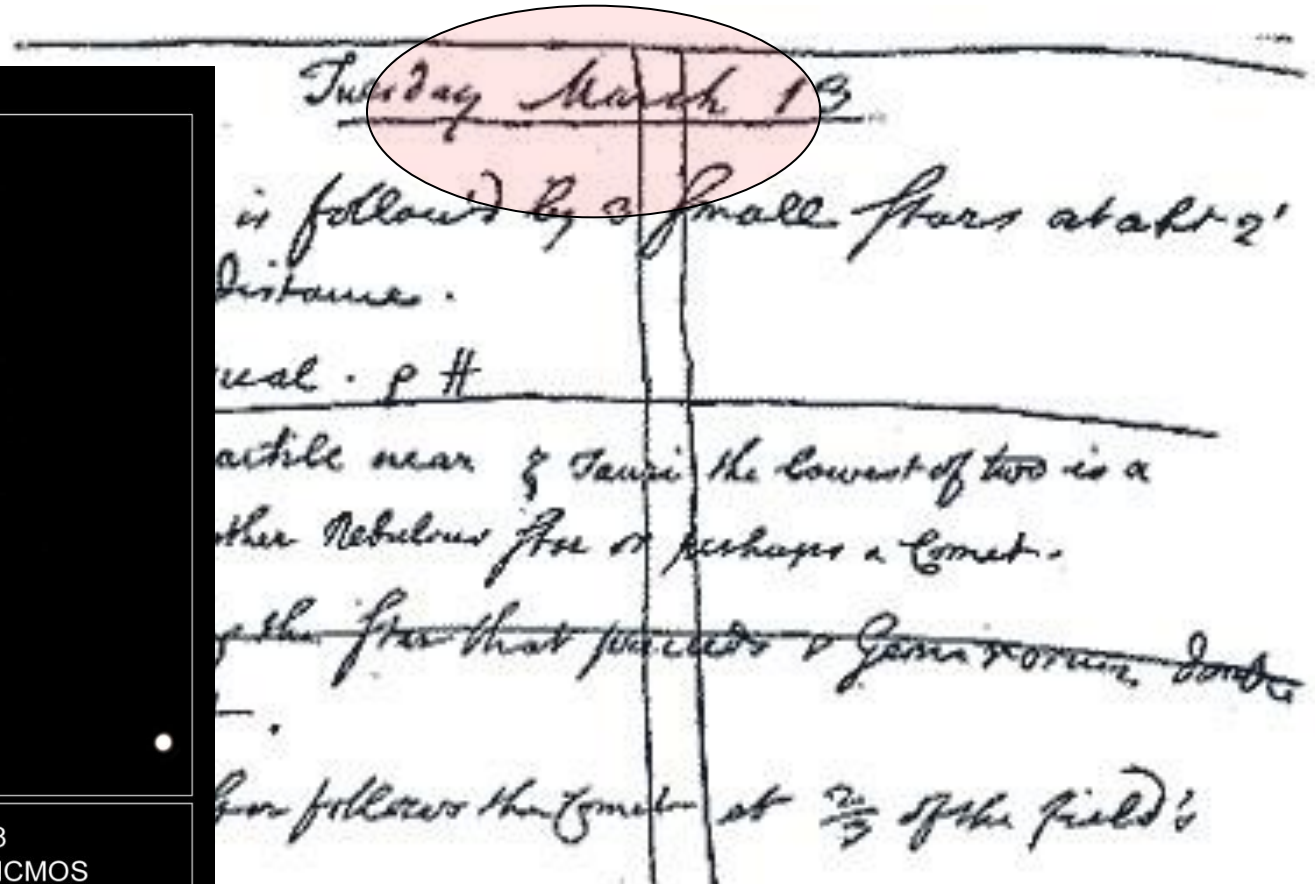 Tuesday March 13
is follow'd by 3 small stars at abt 2'
distance.
ual. ρ H
artile near ζ Tauri the lowest of two is a
ther Nebulous star or perhaps a Comet.
the star that precedes Geminorum double
follows the Comet at 2/3 of the field's
3
ICMOS